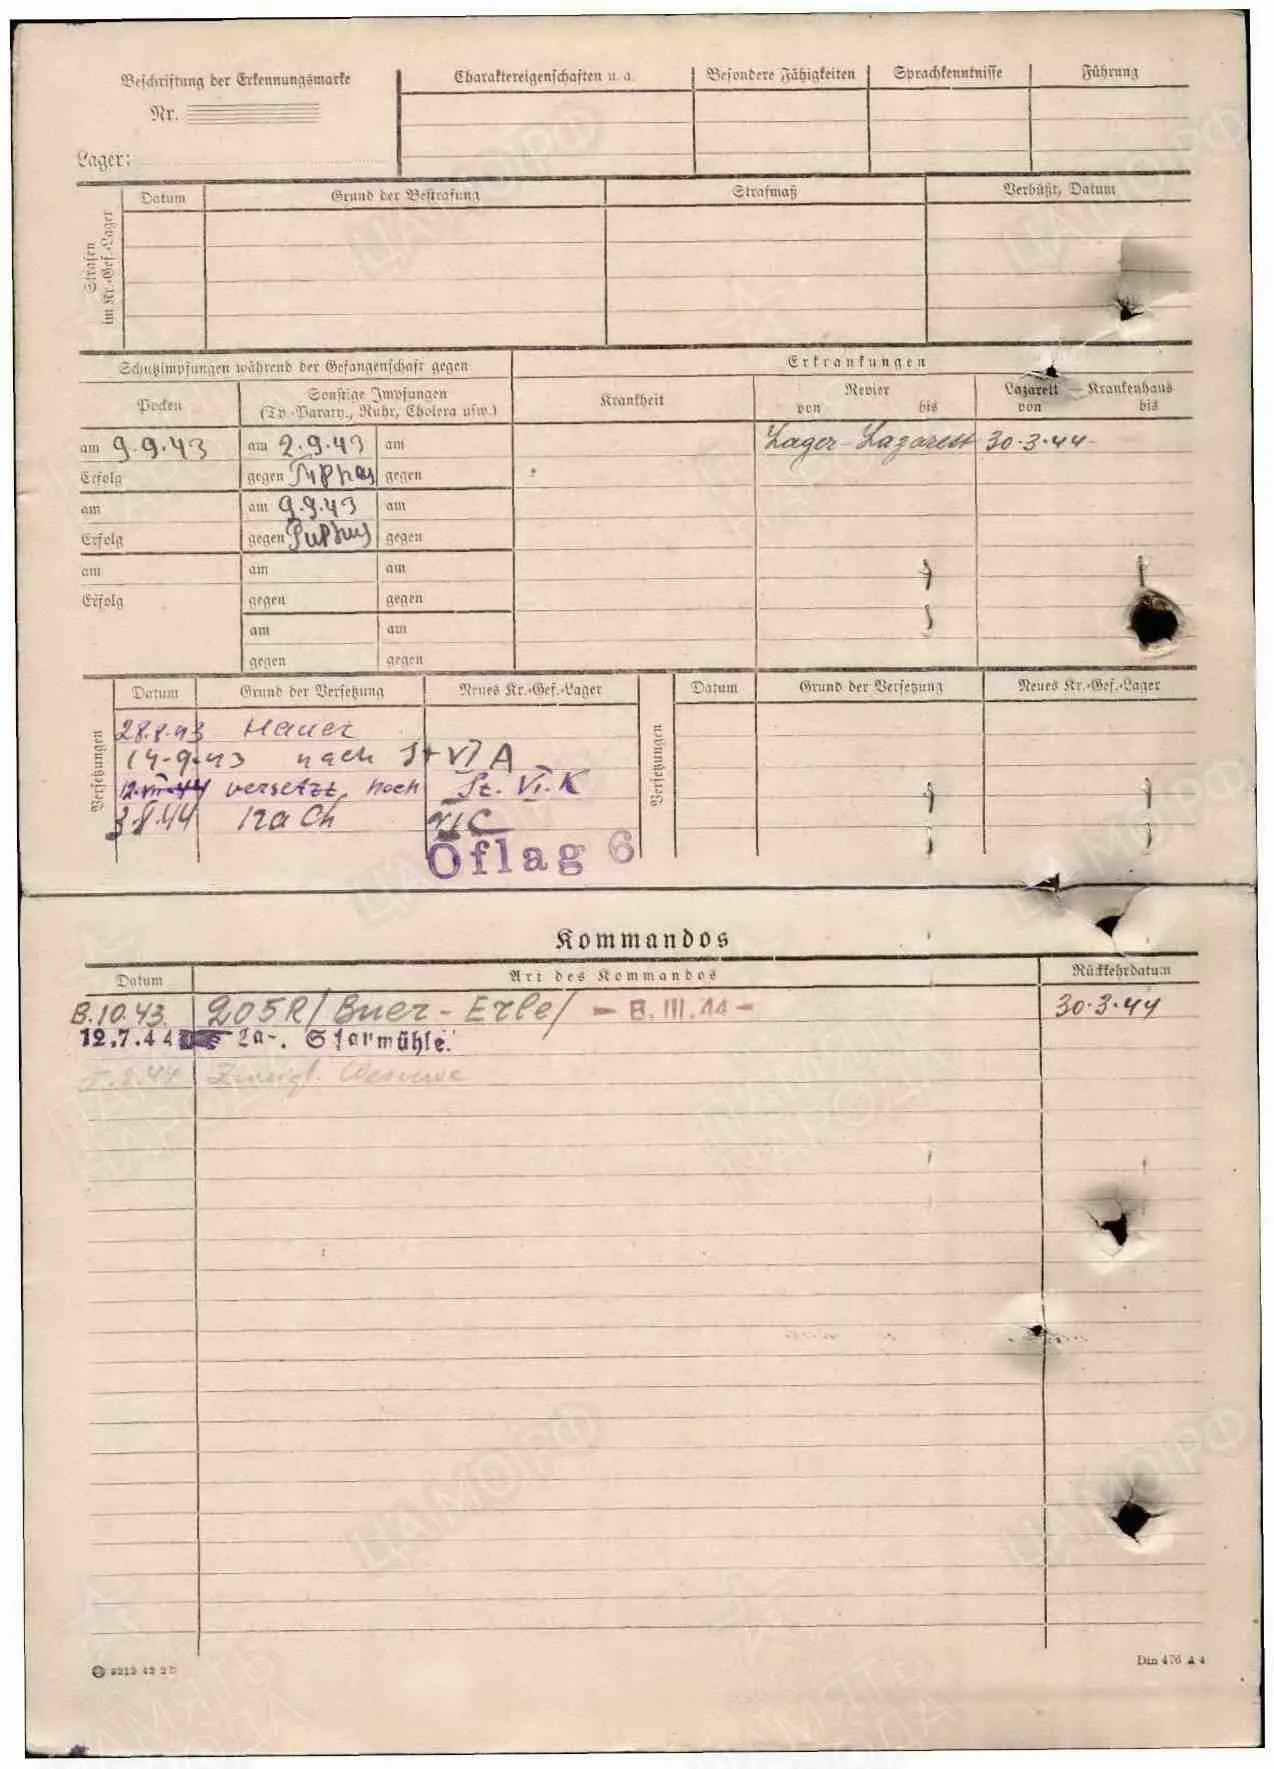 Beschriftung der Erkennungsmarke
Nr.
Lager:
Charaktereigenschaften u. a.
Besondere Fähigkeiten
Sprachkenntnisse
Führung
Strafen im Kr.-Gef.-Lager
Datum
Grund der Bestrafung
Strafmaß
Verbüßt, Datum
Schutzimpfungen während der Gefangenschaft gegen
Erkrankungen
Pocken
Sonstige Impfungen
(Ty.-Paraty., Ruhr, Cholera usw.)
Krankheit
Revier
von bis
Lazarett — Krankenhaus
von bis
am 9.9.43 am 2.9.43 am
Lager-Lazarett 30.3.44-
Erfolg gegen Typhus gegen
am am 9.9.43 am
Erfolg gegen Typhus gegen
am am am
Erfolg gegen gegen
am am
gegen gegen
Versetzungen
Datum Grund der Versetzung Neues Kr.-Gef.-Lager
28.8.43 Hauer
14-9.43 nach St VI A
versetzt nach St. VI. K
3.8.44 nach VI C
Oflag 6
Versetzungen
Datum Grund der Versetzung Neues Kr.-Gef.-Lager
Kommandos
Datum Art des Kommandos Rückkehrdatum
8.10.43. 205R/Buer-Erle/ - 8.III.44 - 30.3.44
12.7.44
9213 43 2D
Din 476 A 4
ЦАМО РФ
ПАМЯТЬ НАРОДА